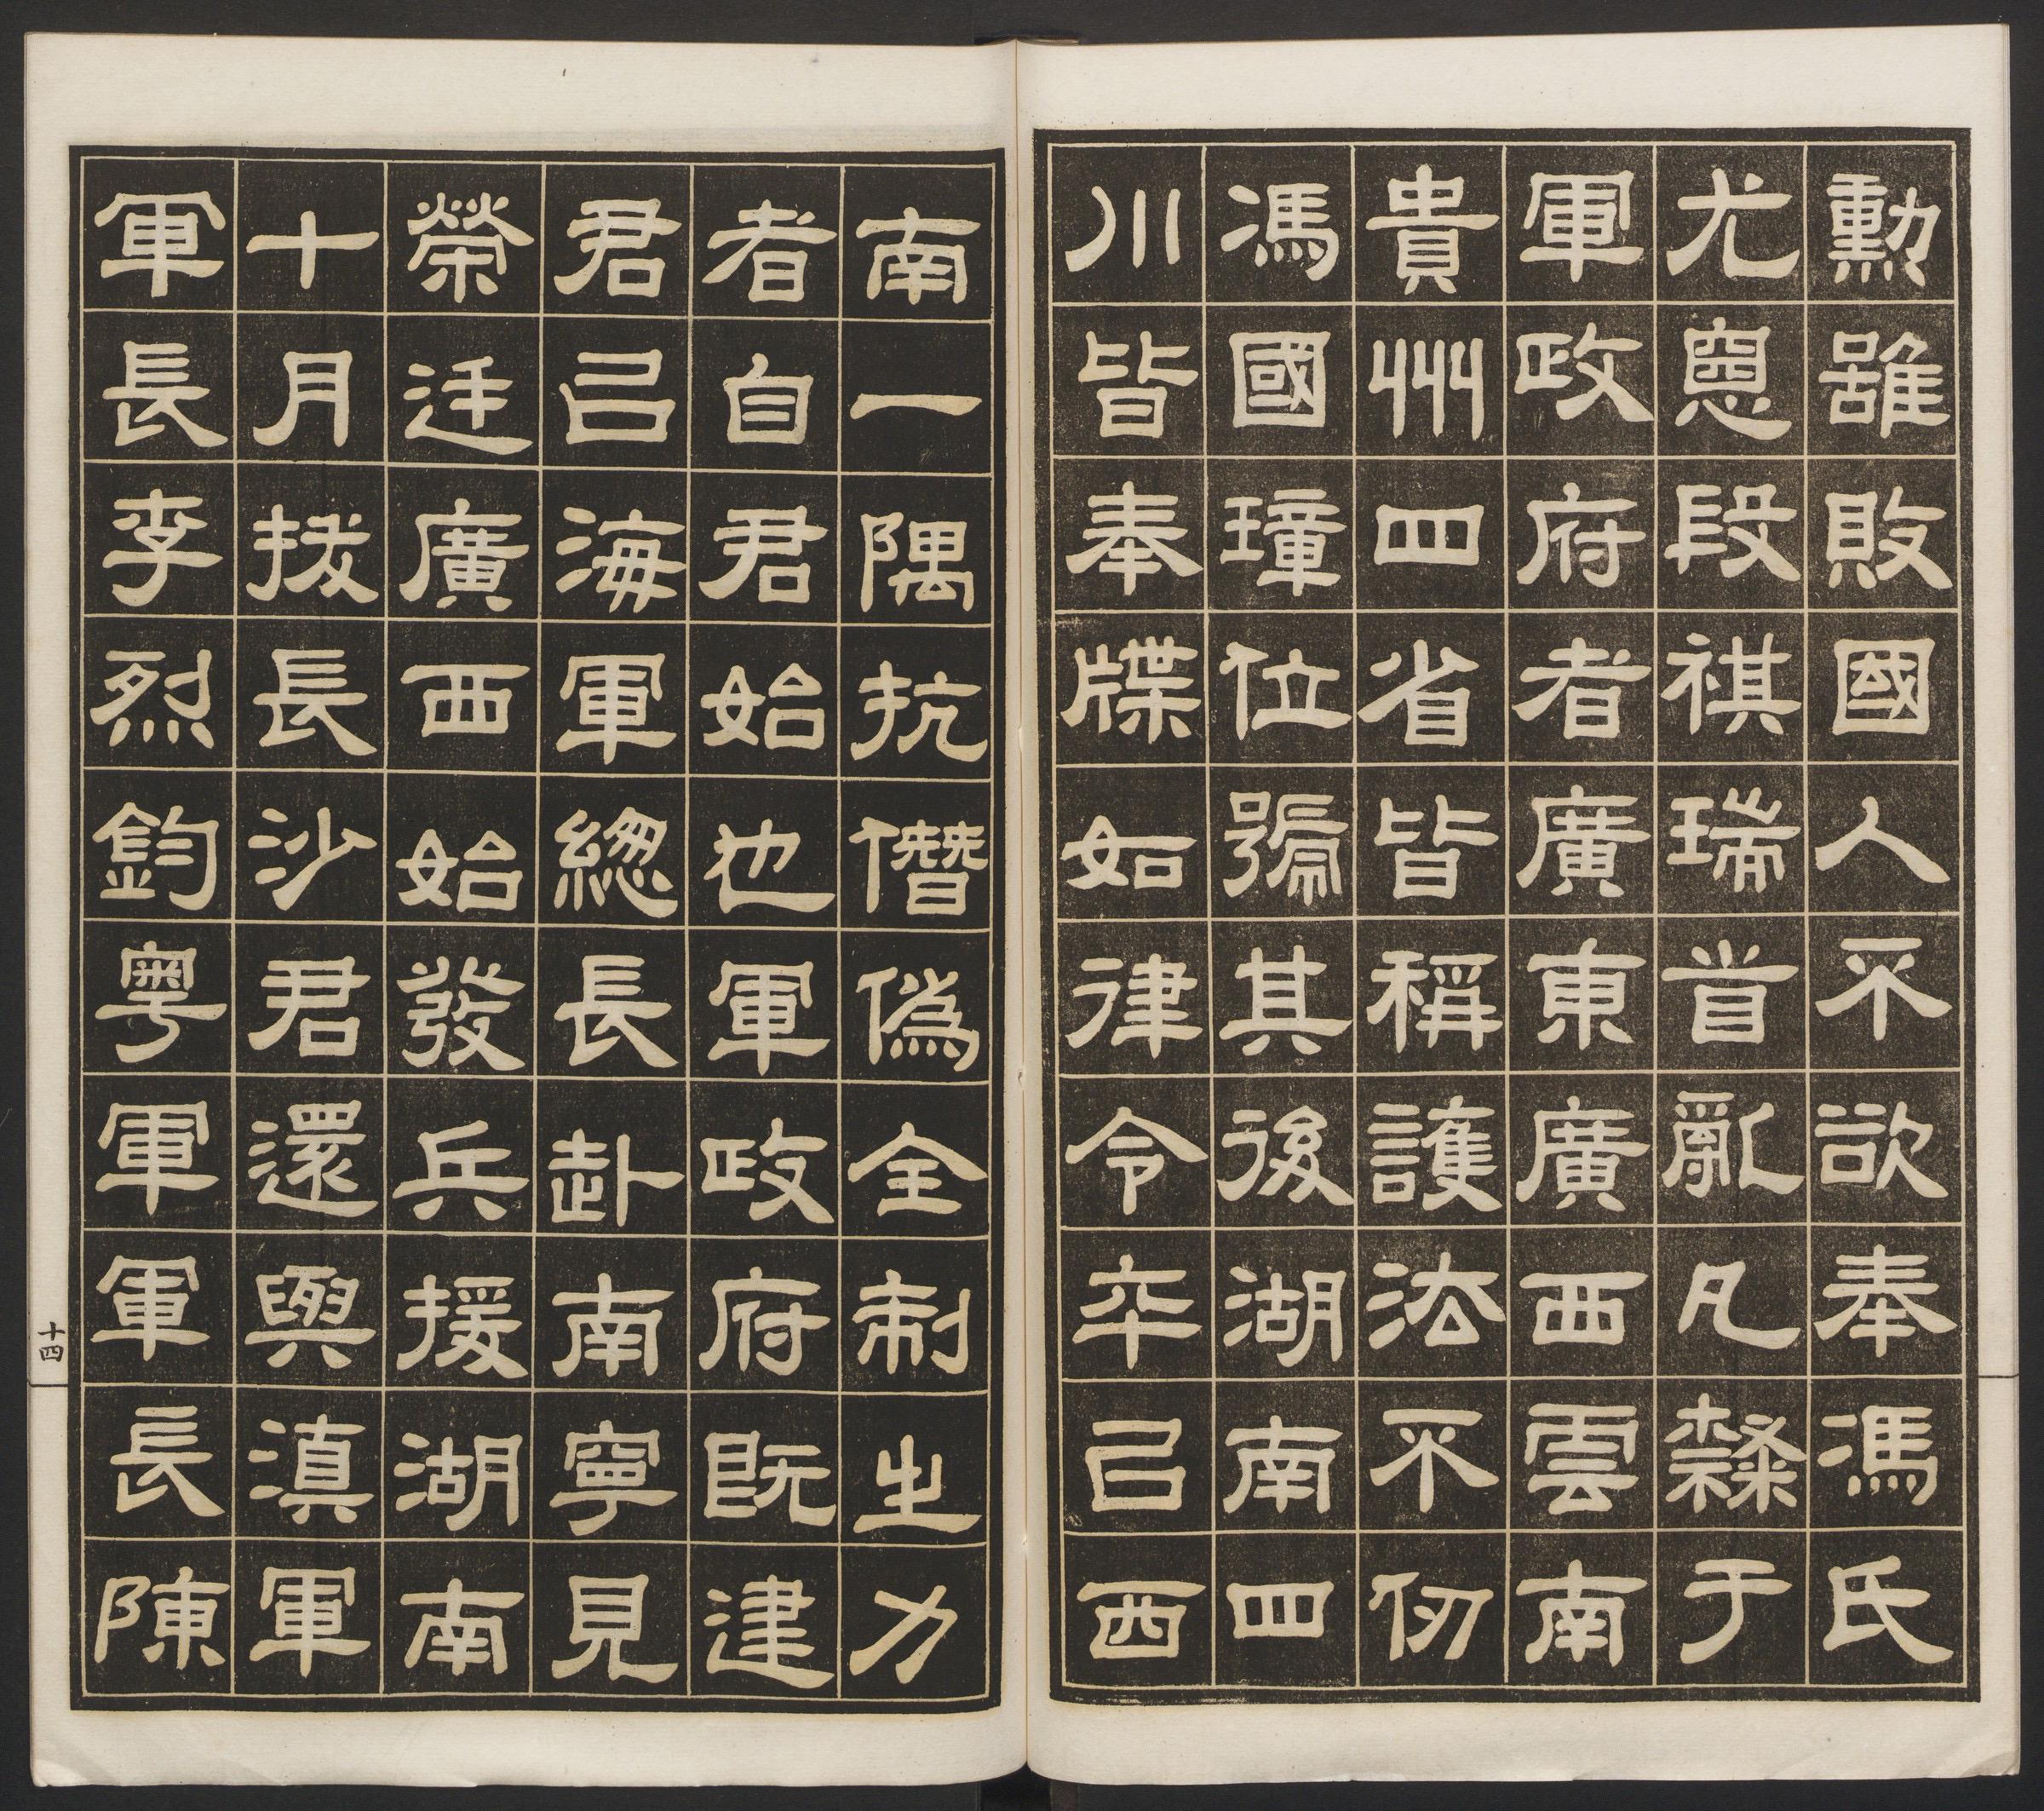 勲雖敗國人不欲奉馮氏
尤惡段祺瑞首亂凡隸于
軍政府者廣東廣西雲南
貴州四省皆稱護法不仞
馮國璋位號其後湖南四
川皆奉牒如律令卒以西
南一隅抗僭偽全制之力
者自君始也軍政府既建
君以海軍總長赴南寧見
榮廷廣西始發兵援湖南
十月拔長沙君還與滇軍
軍長李烈鈞粵軍軍長陳
十四